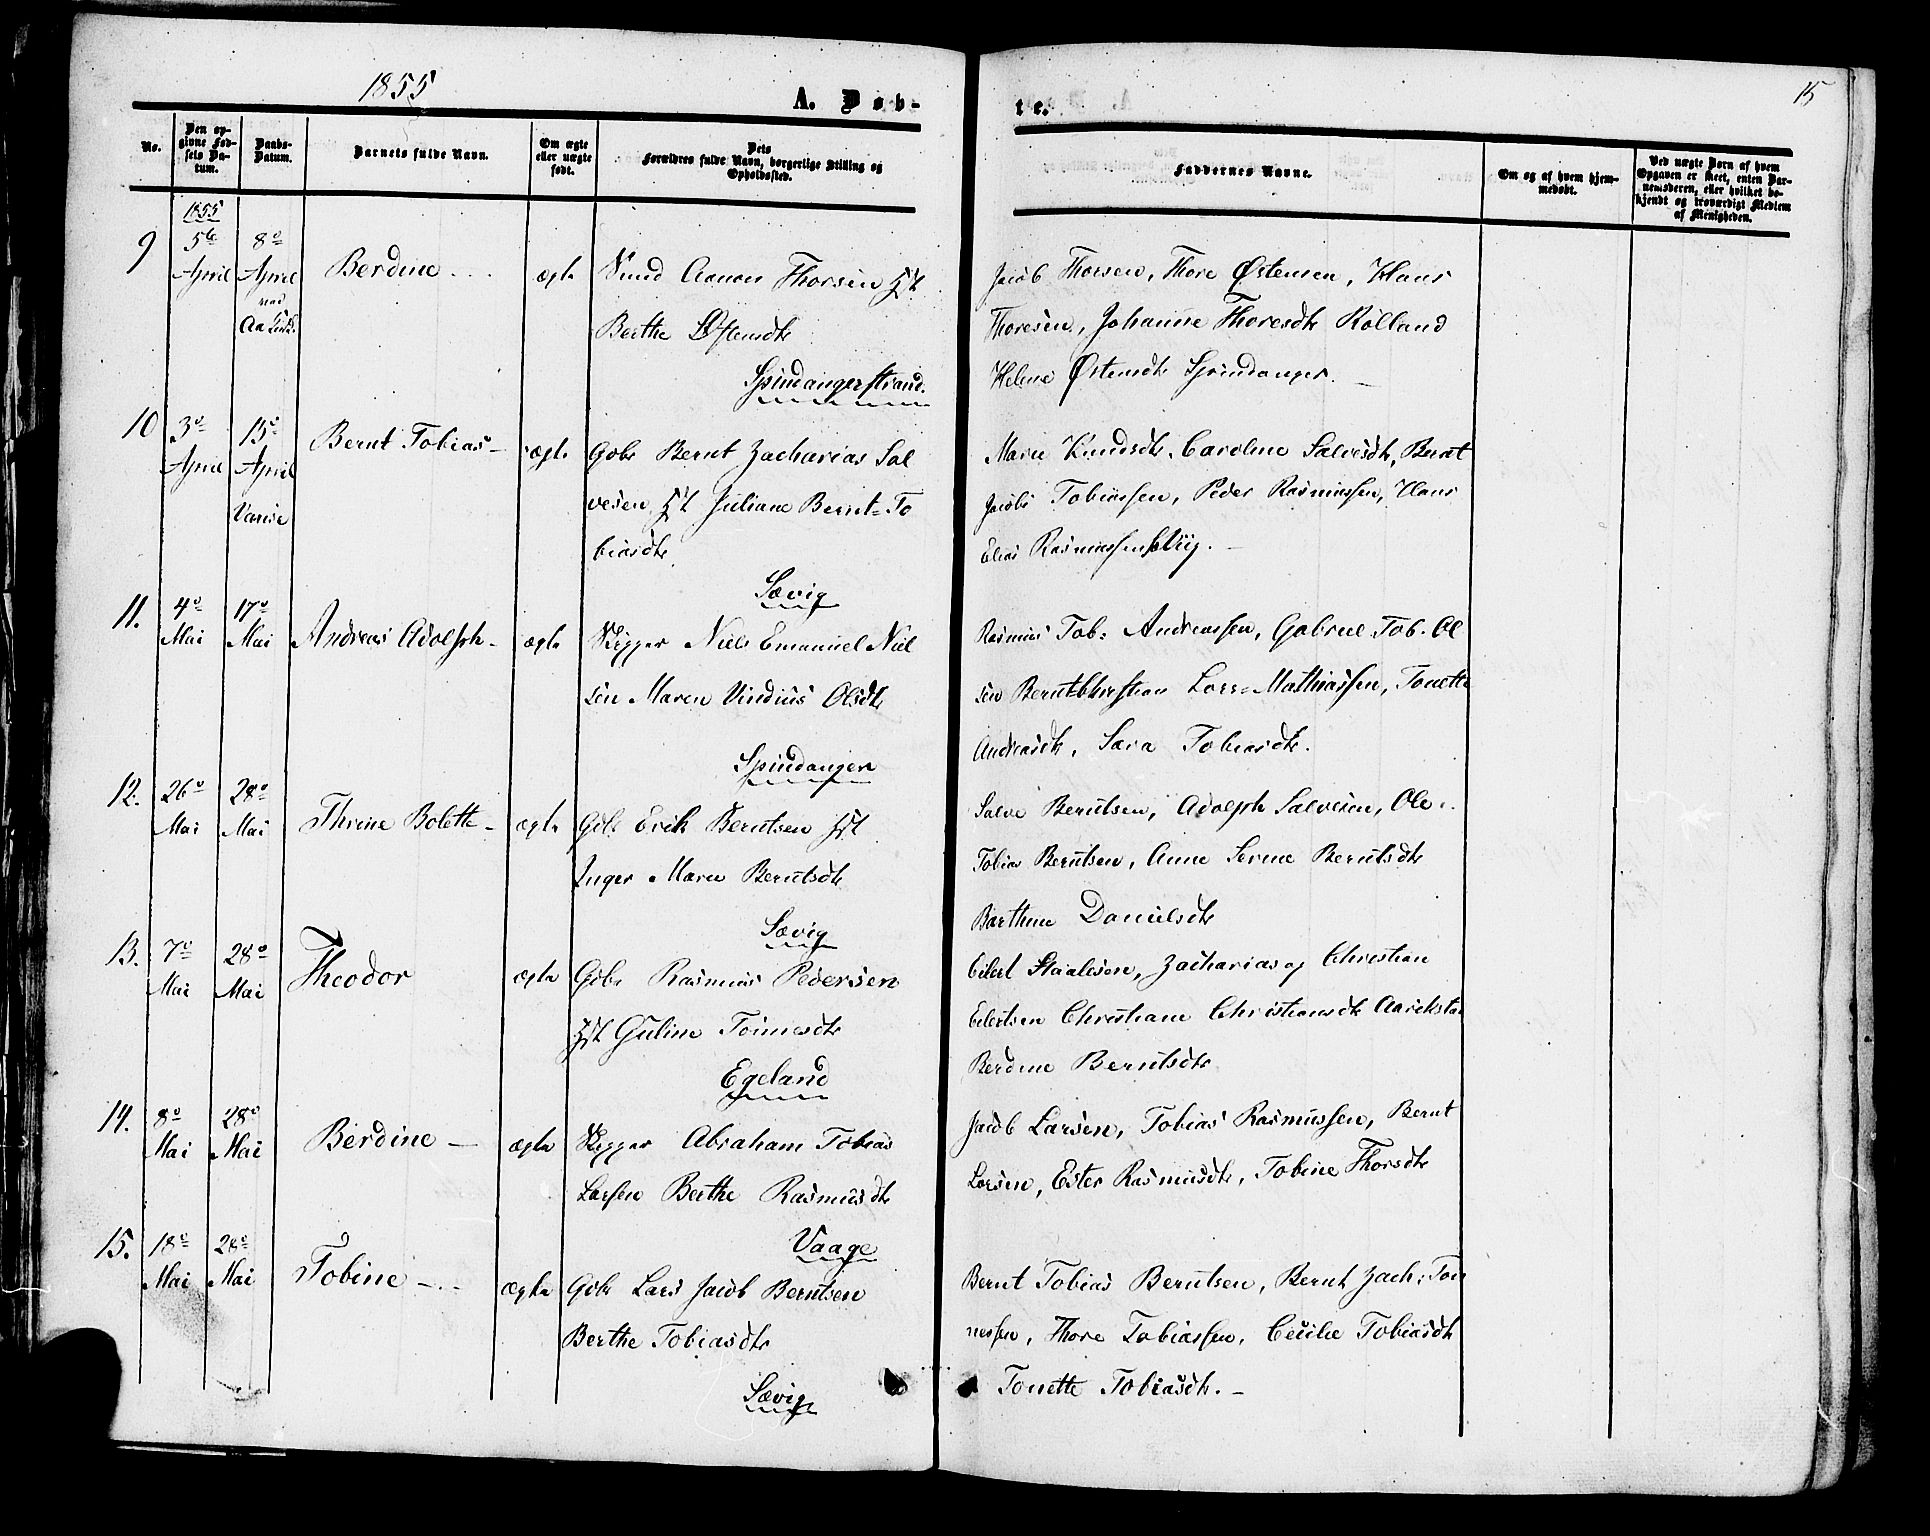 1855
A. Døb-
te.
15
No.
Den op-
givne Fød-
sels Da-
tum.
Daabs-
Datum.
Barnets fulde Navn.
Om ægte
eller uægte
født.
Dets
Forældres fulde Navn, borgerlige Stilling og
Opholdssted.
Faddernes Navne.
Om og af hvem hjem-
medøbt.
Ved uægte Børn af hvem
Opgaven er skeet, enten Bar-
nemoderen, eller hvilket be-
kjendt og troværdigt Medlem
af Menigheden.
1855
9 5te April 8de April Berdine ægte
Aanon Thorsen Hst
Berthe Østensdtr
Spindangerstrand
Jacob Thorsen, Thore Østensen, Hans
Thoresen, Johanne Thoresdtr Rølland
Helene Østensdtr Spindanger.
10 3de April 15de April Vanse Bernt Tobias ægte
Gbr Bernt Zacharias Sal
vesen Hst Juliane Bernt-To
biasdtr
Sævig
Maren Knudsdtr. Caroline Salvesdtr, Bernt
Jacob Tobiassen, Peder Rasmussen, Hans
Elias Rasmussen
11. 4de Mai 17de Mai Andreas Adolph ægte
Skipper Niels Emanuel Niel
sen Maren Vindius Olsdtr
Spindanger
Rasmus Tob: Andreassen, Gabriel Tob. Ol
sen Bernt Christian Lars-Mathiassen, Tonette
Andreasdtr, Sara Tobiasdtr.
12. 26de Mai 28de Mai Thrine Bolette ægte
Gbr Erik Berntsen Hst
Inger Maren Berntsdtr
Sævig
Salve Berntsen, Adolph Salvesen, Ole
Tobias Berntsen, Anne Serine Berntsdtr
Barthine Danielsdtr
13. 7de Mai 28de Mai Theodor ægte
Gbr Rasmus Pedersen
Hst Guline Tønnesdtr
Egeland
Eilert Staalesen, Zacharias og Christian
Eilertsen Christiane Christiansdtr Aarikstad
Berdine Berntsdtr
14. 8de Mai 28de Mai Berdine ægte
Skipper Abraham Tobias
Larsen Berthe Rasmusdtr
Vaage
Jacob Larsen, Tobias Rasmussen, Bernt
Larsen, Ester Rasmusdtr, Tobine Thorsdtr
15. 18de Mai 28de Mai Tobine ægte
Gbr Lars Jacob Berntsen
Berthe Tobiasdtr
Sævig
Bernt Tobias Berntsen, Bernt Zach: Tøn
nessen, Thore Tobiassen, Cecilie Tobiasdtr
Tonette Tobiasdtr.